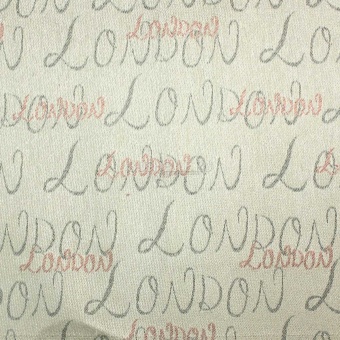 LONDON LO
LONDON
LONDON LONDON
LONDON LONDON
LONDON LO
LONDON
LONDON LONDON
LONDON LONDON
LONDON LONDON
LONDON